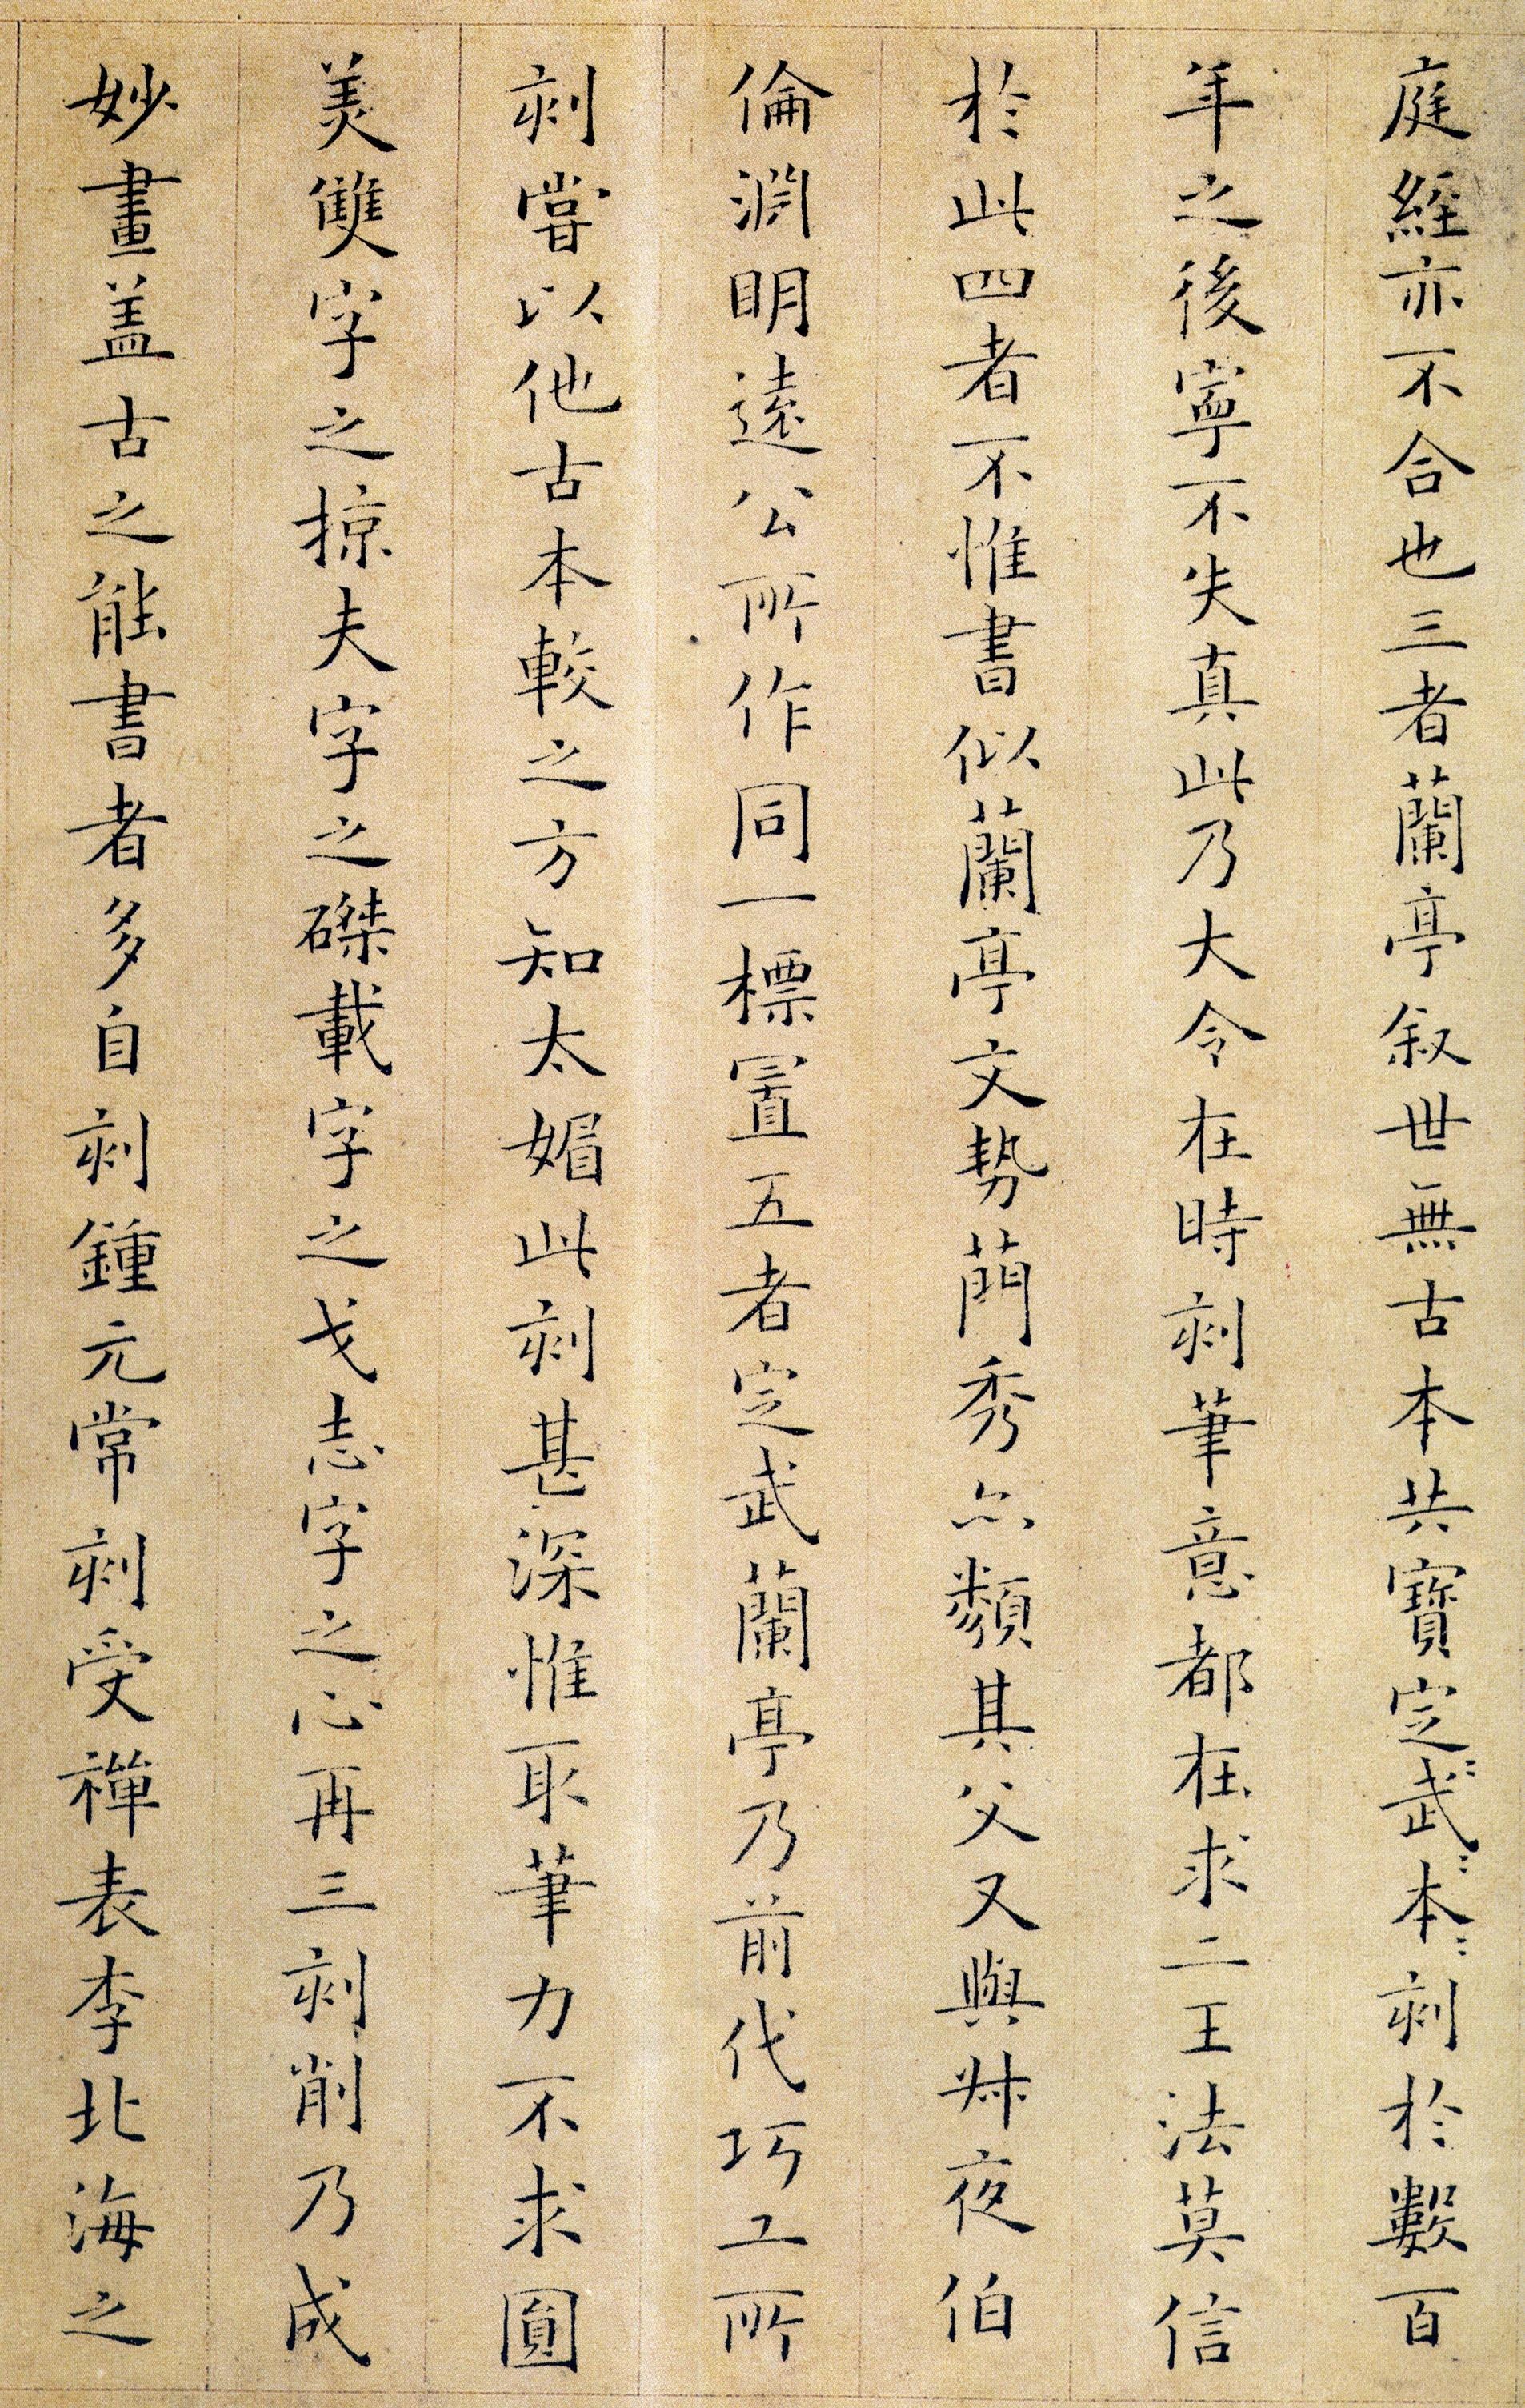 庭經亦不合也三者蘭亭叙世無古本共寶定武〻本〻刻於數百
年之後寧不失真此乃大令在時刻筆意都在求二王法莫信
於此四者不惟書似蘭亭文勢蕳秀亦類其父又與叔夜伯
倫淵明遠公所作同一標置五者定武蘭亭乃前代巧工所
刻嘗以他古本較之方知太媚此刻甚深惟取筆力不求圓
美雙字之掠夫字之磔載字之戈志字之心再三刻削乃成
妙畫盖古之能書者多自刻鍾元常刻受禪表李北海之